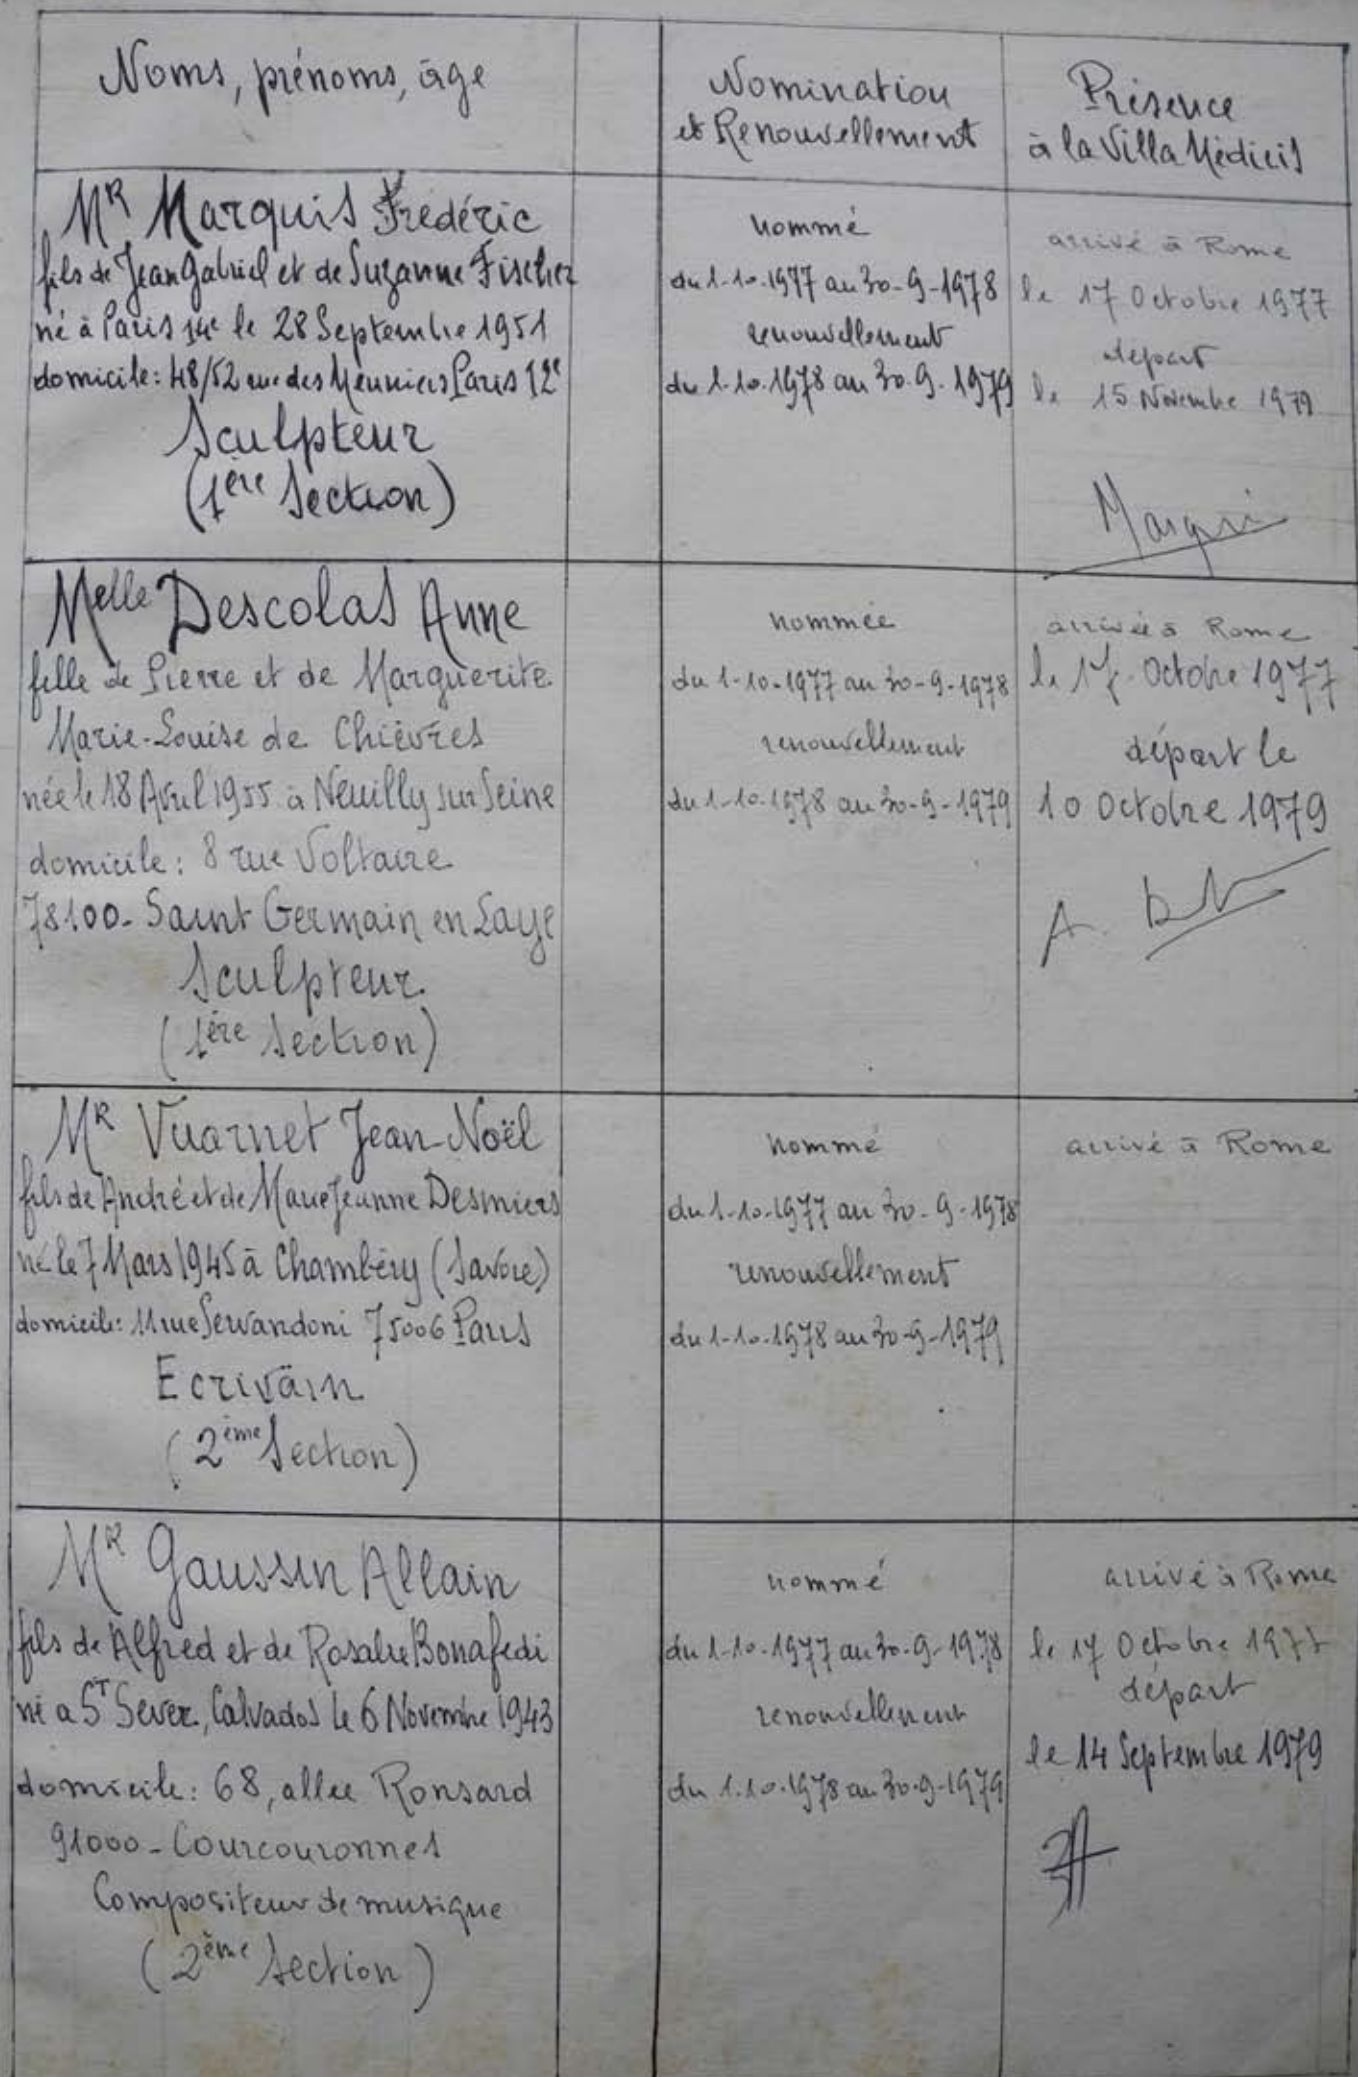 Noms, prénoms, âge
Nomination
et Renouvellement
Présence
à la Villa Médicis
MR Marquis Frédéric
fils de Jean Gabriel et de Suzanne Fischer
né à Paris 14e le 28 Septembre 1951
domicile: 48/52 rue des Meuniers Paris 12e
Sculpteur
(1ère Section)
nommé
du 1-10-1977 au 30-9-1978
renouvellement
du 1-10-1978 au 30.9.1979
arrivé à Rome
le 17 Octobre 1977
départ
le 15 Novembre 1979
Marquis
Melle Descolas Anne
fille de Pierre et de Marguerite
Marie-Louise de Chièvres
née le 18 Avril 1955 à Neuilly sur Seine
domicile: 8 rue Voltaire
78100- Saint Germain en Laye
Sculpteur
(1ère Section)
nommée
du 1-10-1977 au 30-9-1978
renouvellement
du 1-10-1978 au 30-9-1979
arrivée à Rome
le 17 Octobre 1977
départ le
10 Octobre 1979
A.
MR Vuarnet Jean-Noël
fils de André et de Marie Jeanne Desmiers
né le 7 Mars 1945 à Chambéry (Savoie)
domicile: 11 rue Servandoni 75006 Paris
Ecrivain
(2ème Section)
nommé
du 1-10-1977 au 30-9-1978
renouvellement
du 1-10-1978 au 30-9-1979
arrivé à Rome
MR Gaussin Allain
fils de Alfred et de Rosalie Bonafedi
né a ST Sever, Calvados le 6 Novembre 1943
domicile: 68, allée Ronsard
91000-Courcouronnes
Compositeur de musique
(2ème Section)
nommé
du 1-10-1977 au 30-9-1978
renouvellement
du 1.10.1978 au 30-9-1979
arrivé à Rome
le 17 Octobre 1977
départ
le 14 Septembre 1979